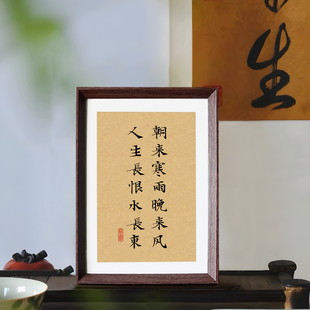 朝来寒雨晚来风
人生長恨水長東
生